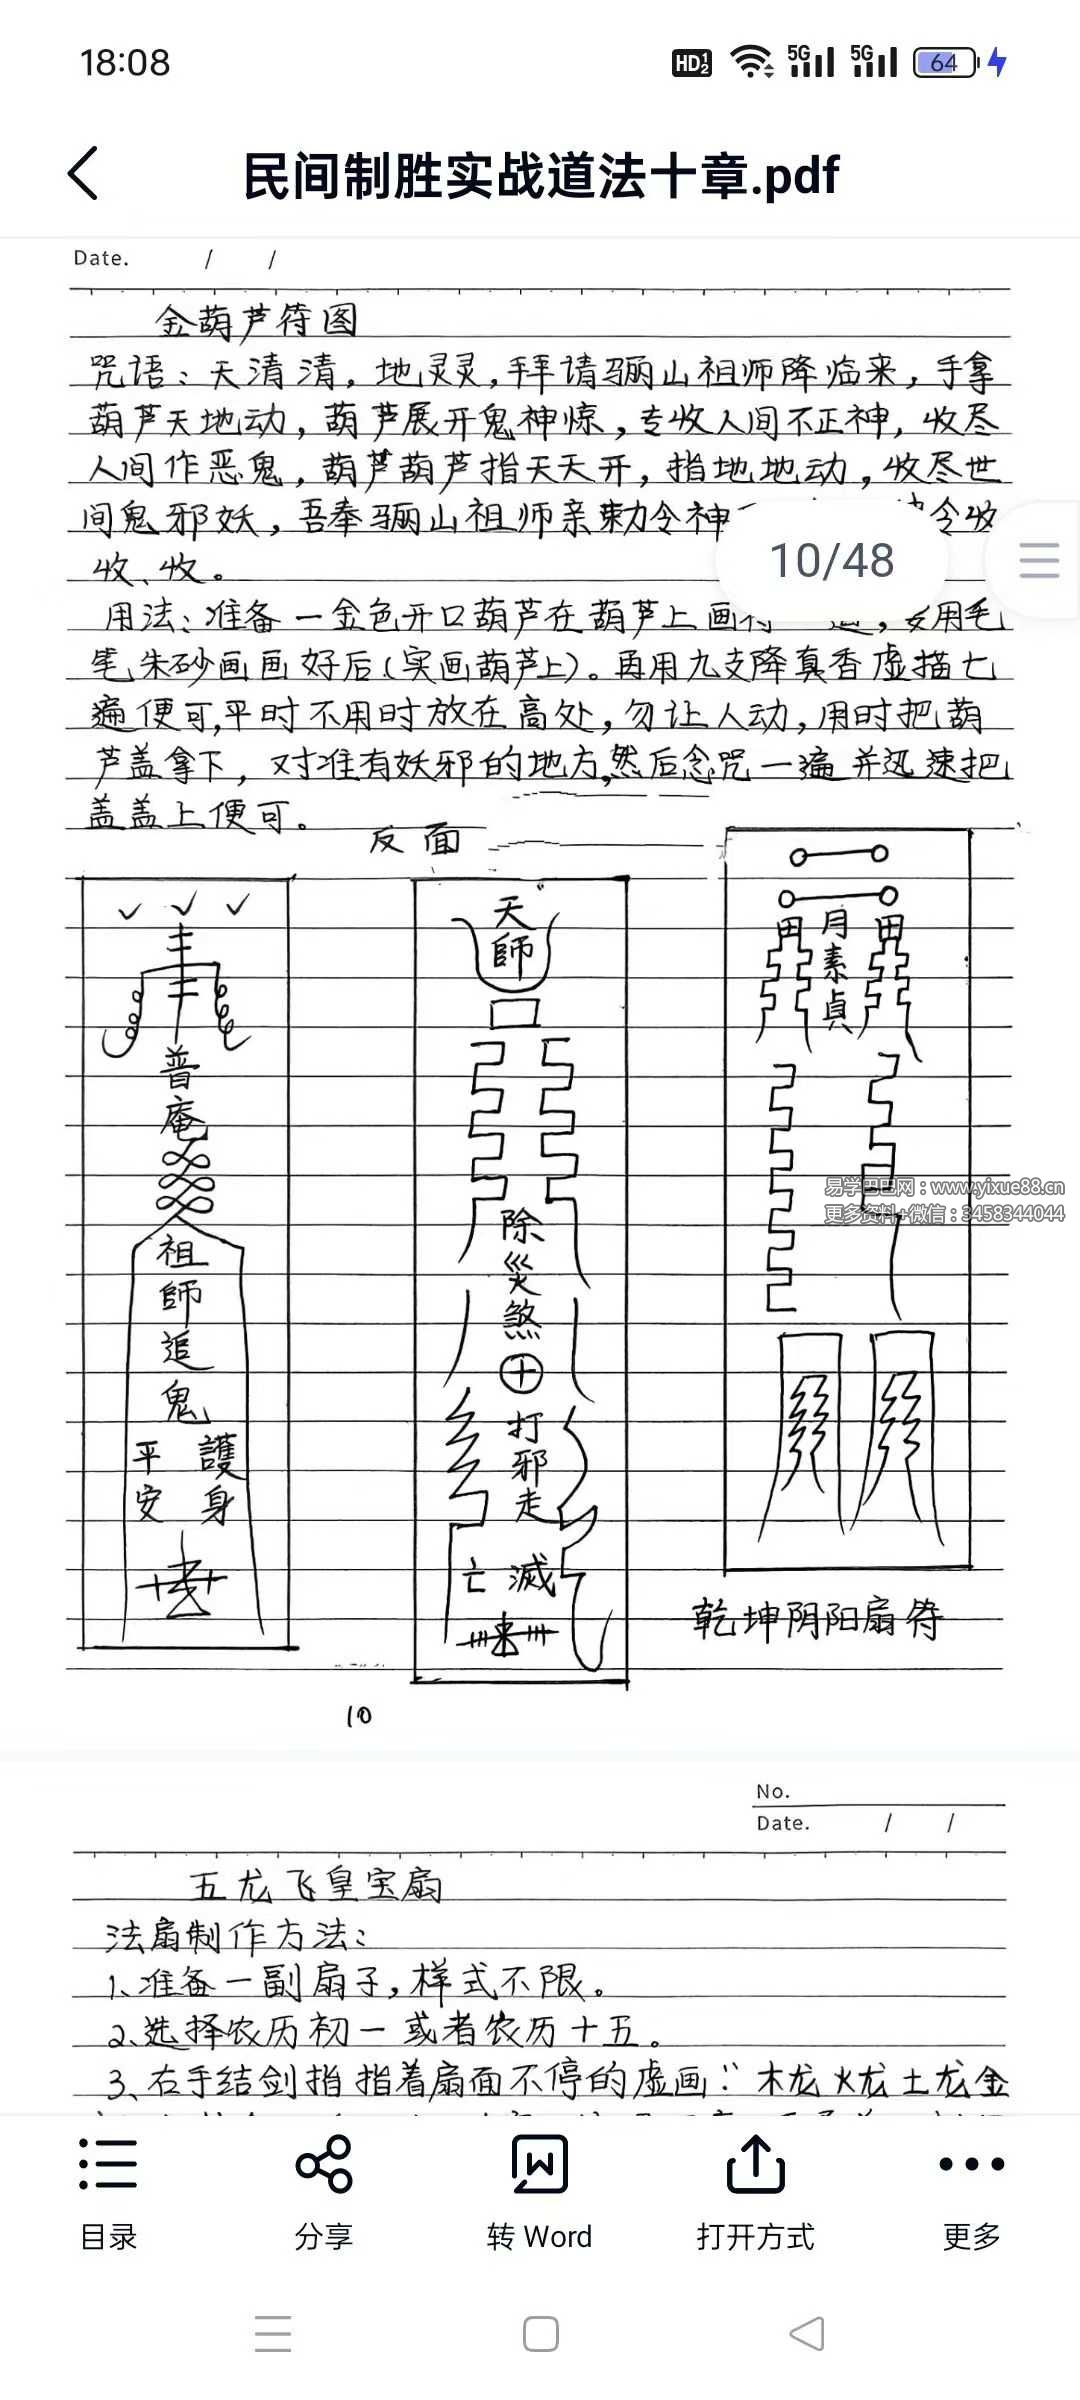 18:08
HD 1 2 5G 5G 64
民间制胜实战道法十章.pdf
Date. / /
金葫芦符图
咒语：天清清，地灵灵，拜请骊山祖师降临来，手拿
葫芦天地动，葫芦展开鬼神惊，专收人间不正神，收尽
人间作恶鬼，葫芦葫芦指天天开，指地地动，收尽世
间鬼邪妖，吾奉骊山祖师亲勅令神 令收
收、收。
10/48
用法：准备一金色开口葫芦在葫芦上画符一道，要用毛
笔朱砂画画好后（实画葫芦上）。再用九支降真香虚描七
遍便可，平时不用时放在高处，勿让人动，用时把葫
芦盖拿下，对准有妖邪的地方，然后念咒一遍并迅速把
盖盖上便可。
反面
普
庵
祖
師
追
鬼
平 護
安 身
天
師
除
災
煞
打
邪
走
亡 滅
月
素
貞
易学巴巴网：www.yixue88.cn
更多资料+微信：3458344044
乾坤阴阳扇符
10
No.
Date. / /
五龙飞皇宝扇
法扇制作方法：
1、准备一副扇子，样式不限。
2、选择农历初一或者农历十五。
3、右手结剑指指着扇面不停的虚画：“木龙火龙土龙金
目录
分享
转 Word
打开方式
更多